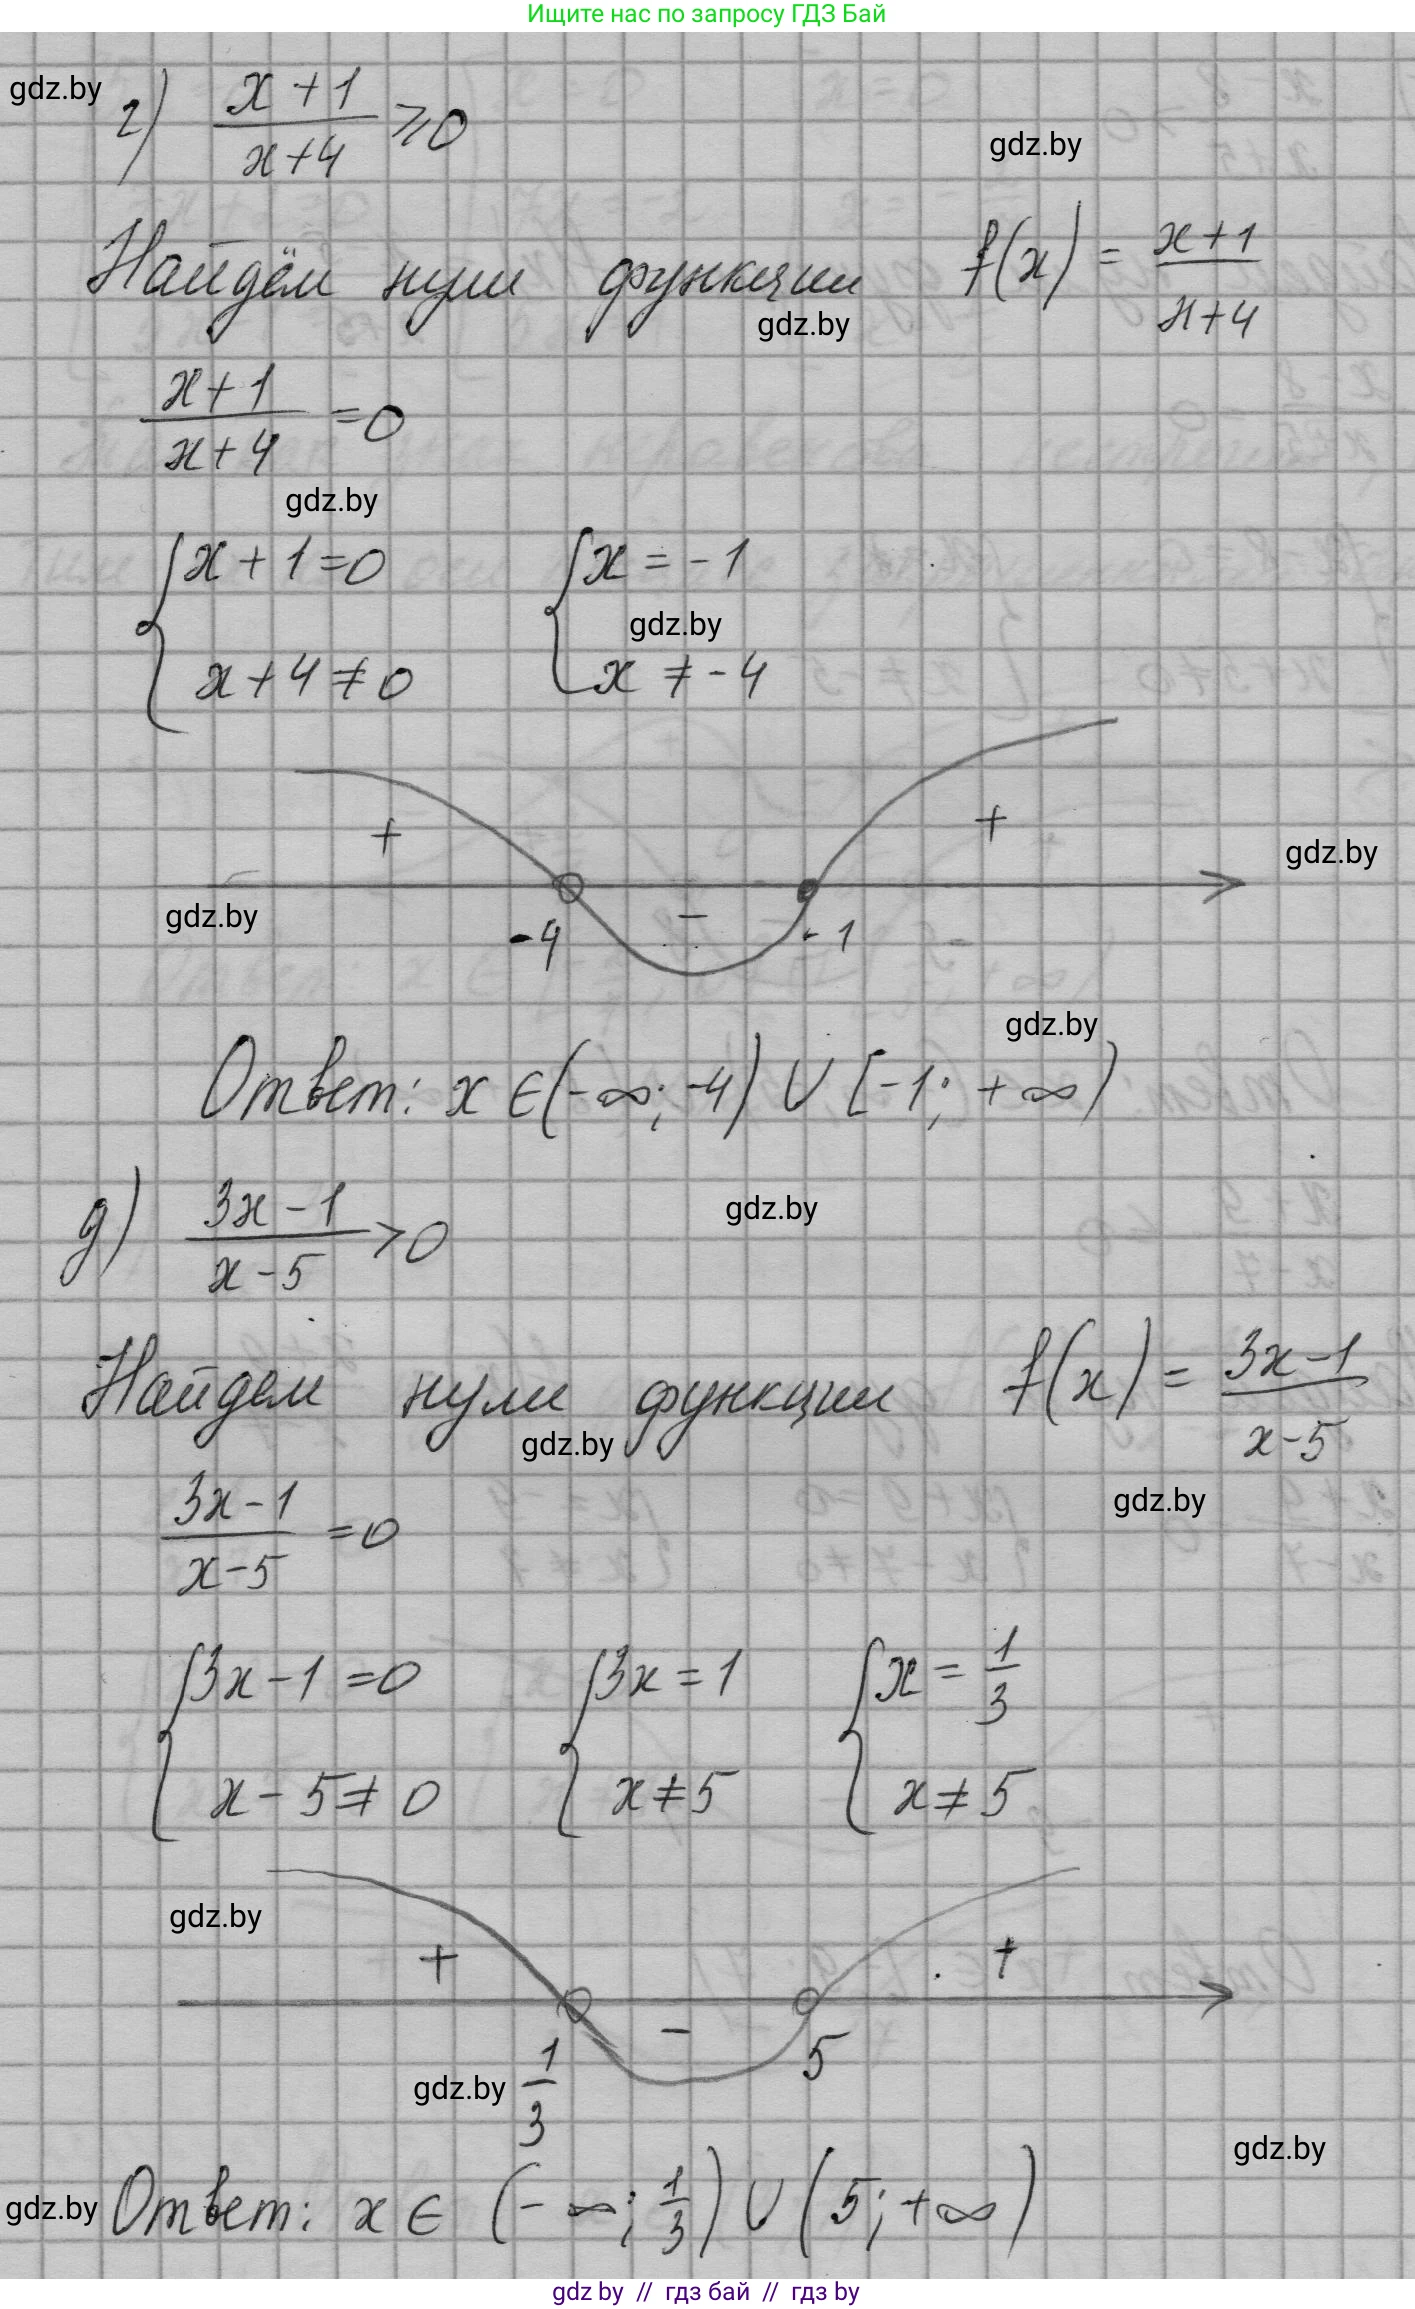 Ищите нас по запросу ГДЗ Бай
gdz.by
г) (x+1)/(x+4) ≥ 0
gdz.by
Найдём нули функции f(x) = (x+1)/(x+4)
gdz.by
(x+1)/(x+4) = 0
gdz.by
{ x+1=0 { x = -1
gdz.by
x+4≠0 x ≠ -4
+ - +
gdz.by
gdz.by
-4 -1
gdz.by
Ответ: x ∈ (-∞; -4) ∪ [-1; +∞)
д) (3x-1)/(x-5) > 0
gdz.by
Найдем нули функции f(x) = (3x-1)/(x-5)
gdz.by
gdz.by
(3x-1)/(x-5) = 0
{ 3x-1=0 { 3x=1 { x = 1/3
x-5≠0 x≠5 x≠5
gdz.by
+ - +
1/3 5
gdz.by
gdz.by
gdz.by
Ответ: x ∈ (-∞; 1/3) ∪ (5; +∞)
gdz by // гдз бай // гдз by